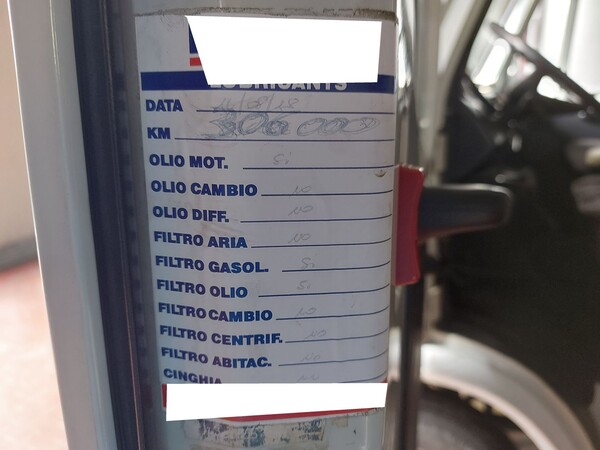 LUBRICANTS
DATA
KM 306000
OLIO MOT. Si
OLIO CAMBIO NO
OLIO DIFF. NO
FILTRO ARIA NO
FILTRO GASOL. Si
FILTRO OLIO Si
FILTRO CAMBIO NO
FILTRO CENTRIF. NO
FILTRO ABITAC. NO
CINGHIA NO